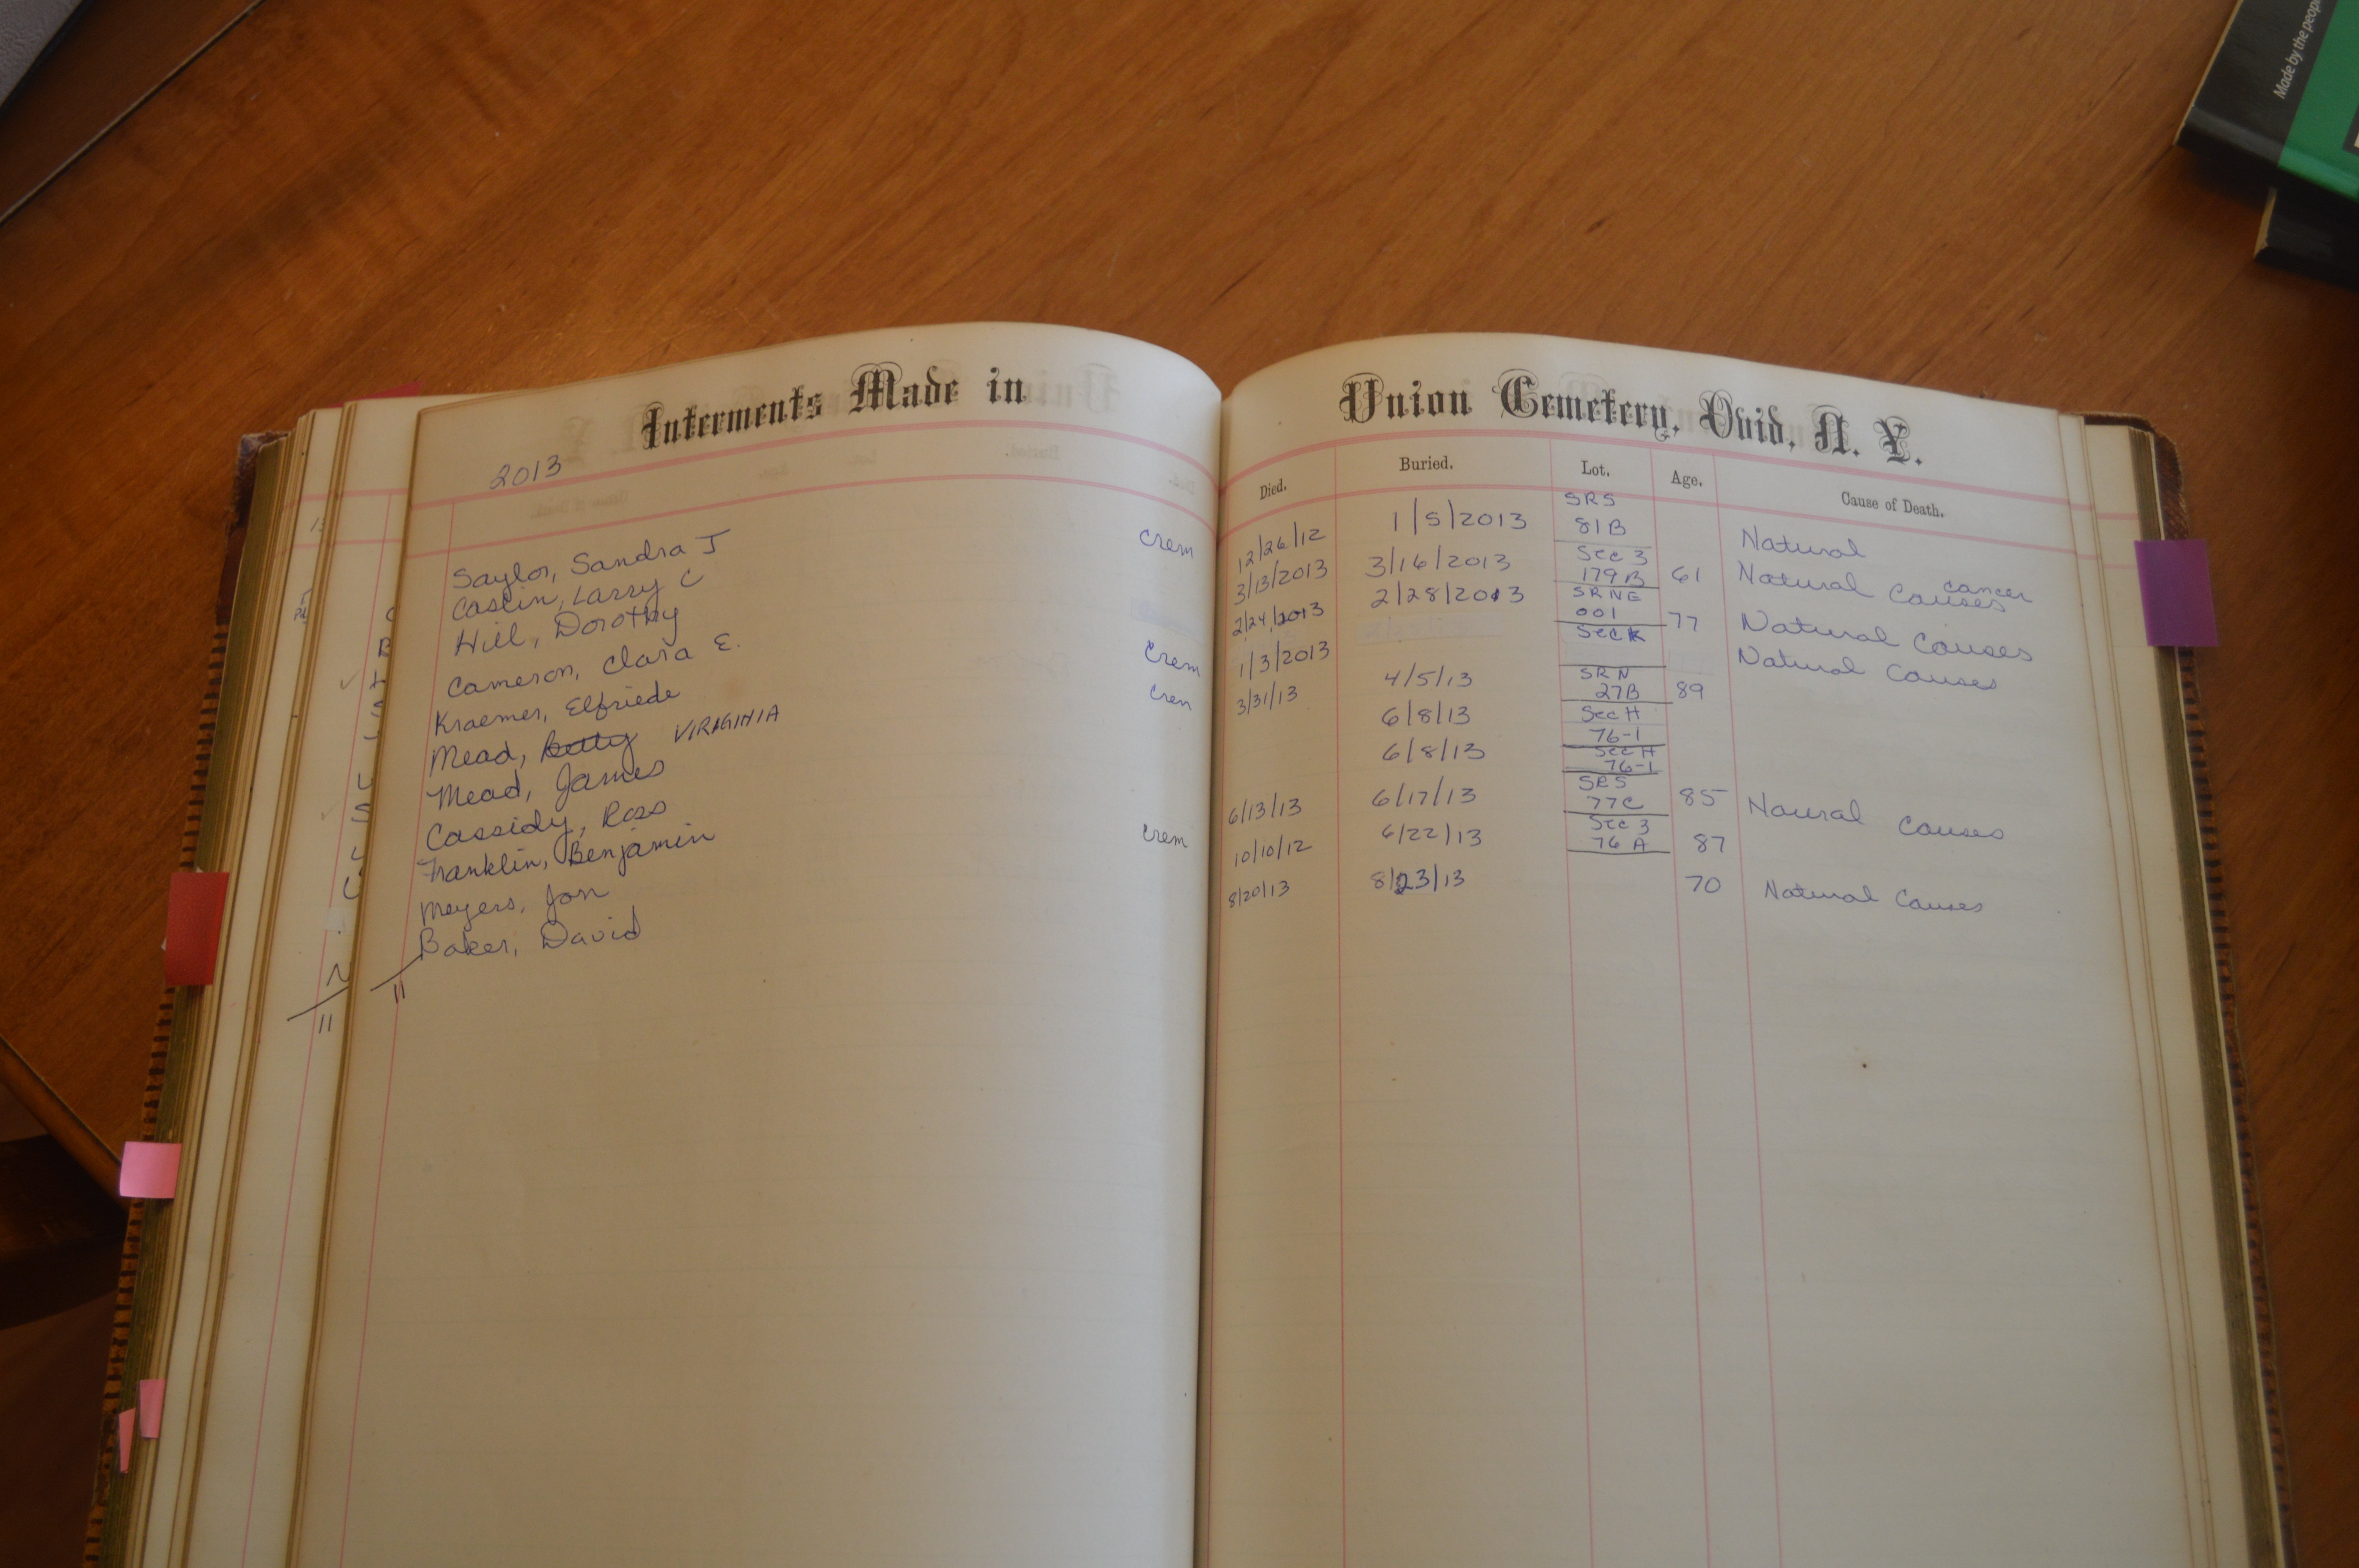 Made by the peop
Interments Made in Union Cemetery, Ovid, N. Y.
2013
Died. Buried. Lot. Age. Cause of Death.
Saylor, Sandra J crem 12/26/12 1/5/2013 SRS 81B Natural
Caslin, Larry C 3/13/2013 3/16/2013 Sec 3 179B 61 Natural Causes cancer
Hill, Dorothy 2/24/2013 2/28/2013 SRNE 001 77 Natural Causes
Cameron, Clara E. crem 1/3/2013 Sec K Natural Causes
Kraemer, Elfriede crem 3/31/13 4/5/13 SRN 27B 89
Mead, Betty VIRGINIA 6/8/13 Sec H 76-1
Mead, James 6/8/13 Sec H 76-1
Cassidy, Ross 6/13/13 6/17/13 SRS 77C 85 Naural Causes
Franklin, Benjamin crem 10/10/12 6/22/13 Sec 3 76 A 87
Meyers, Jon 8/20/13 8/23/13 70 Natural Causes
Baker, David
11
11